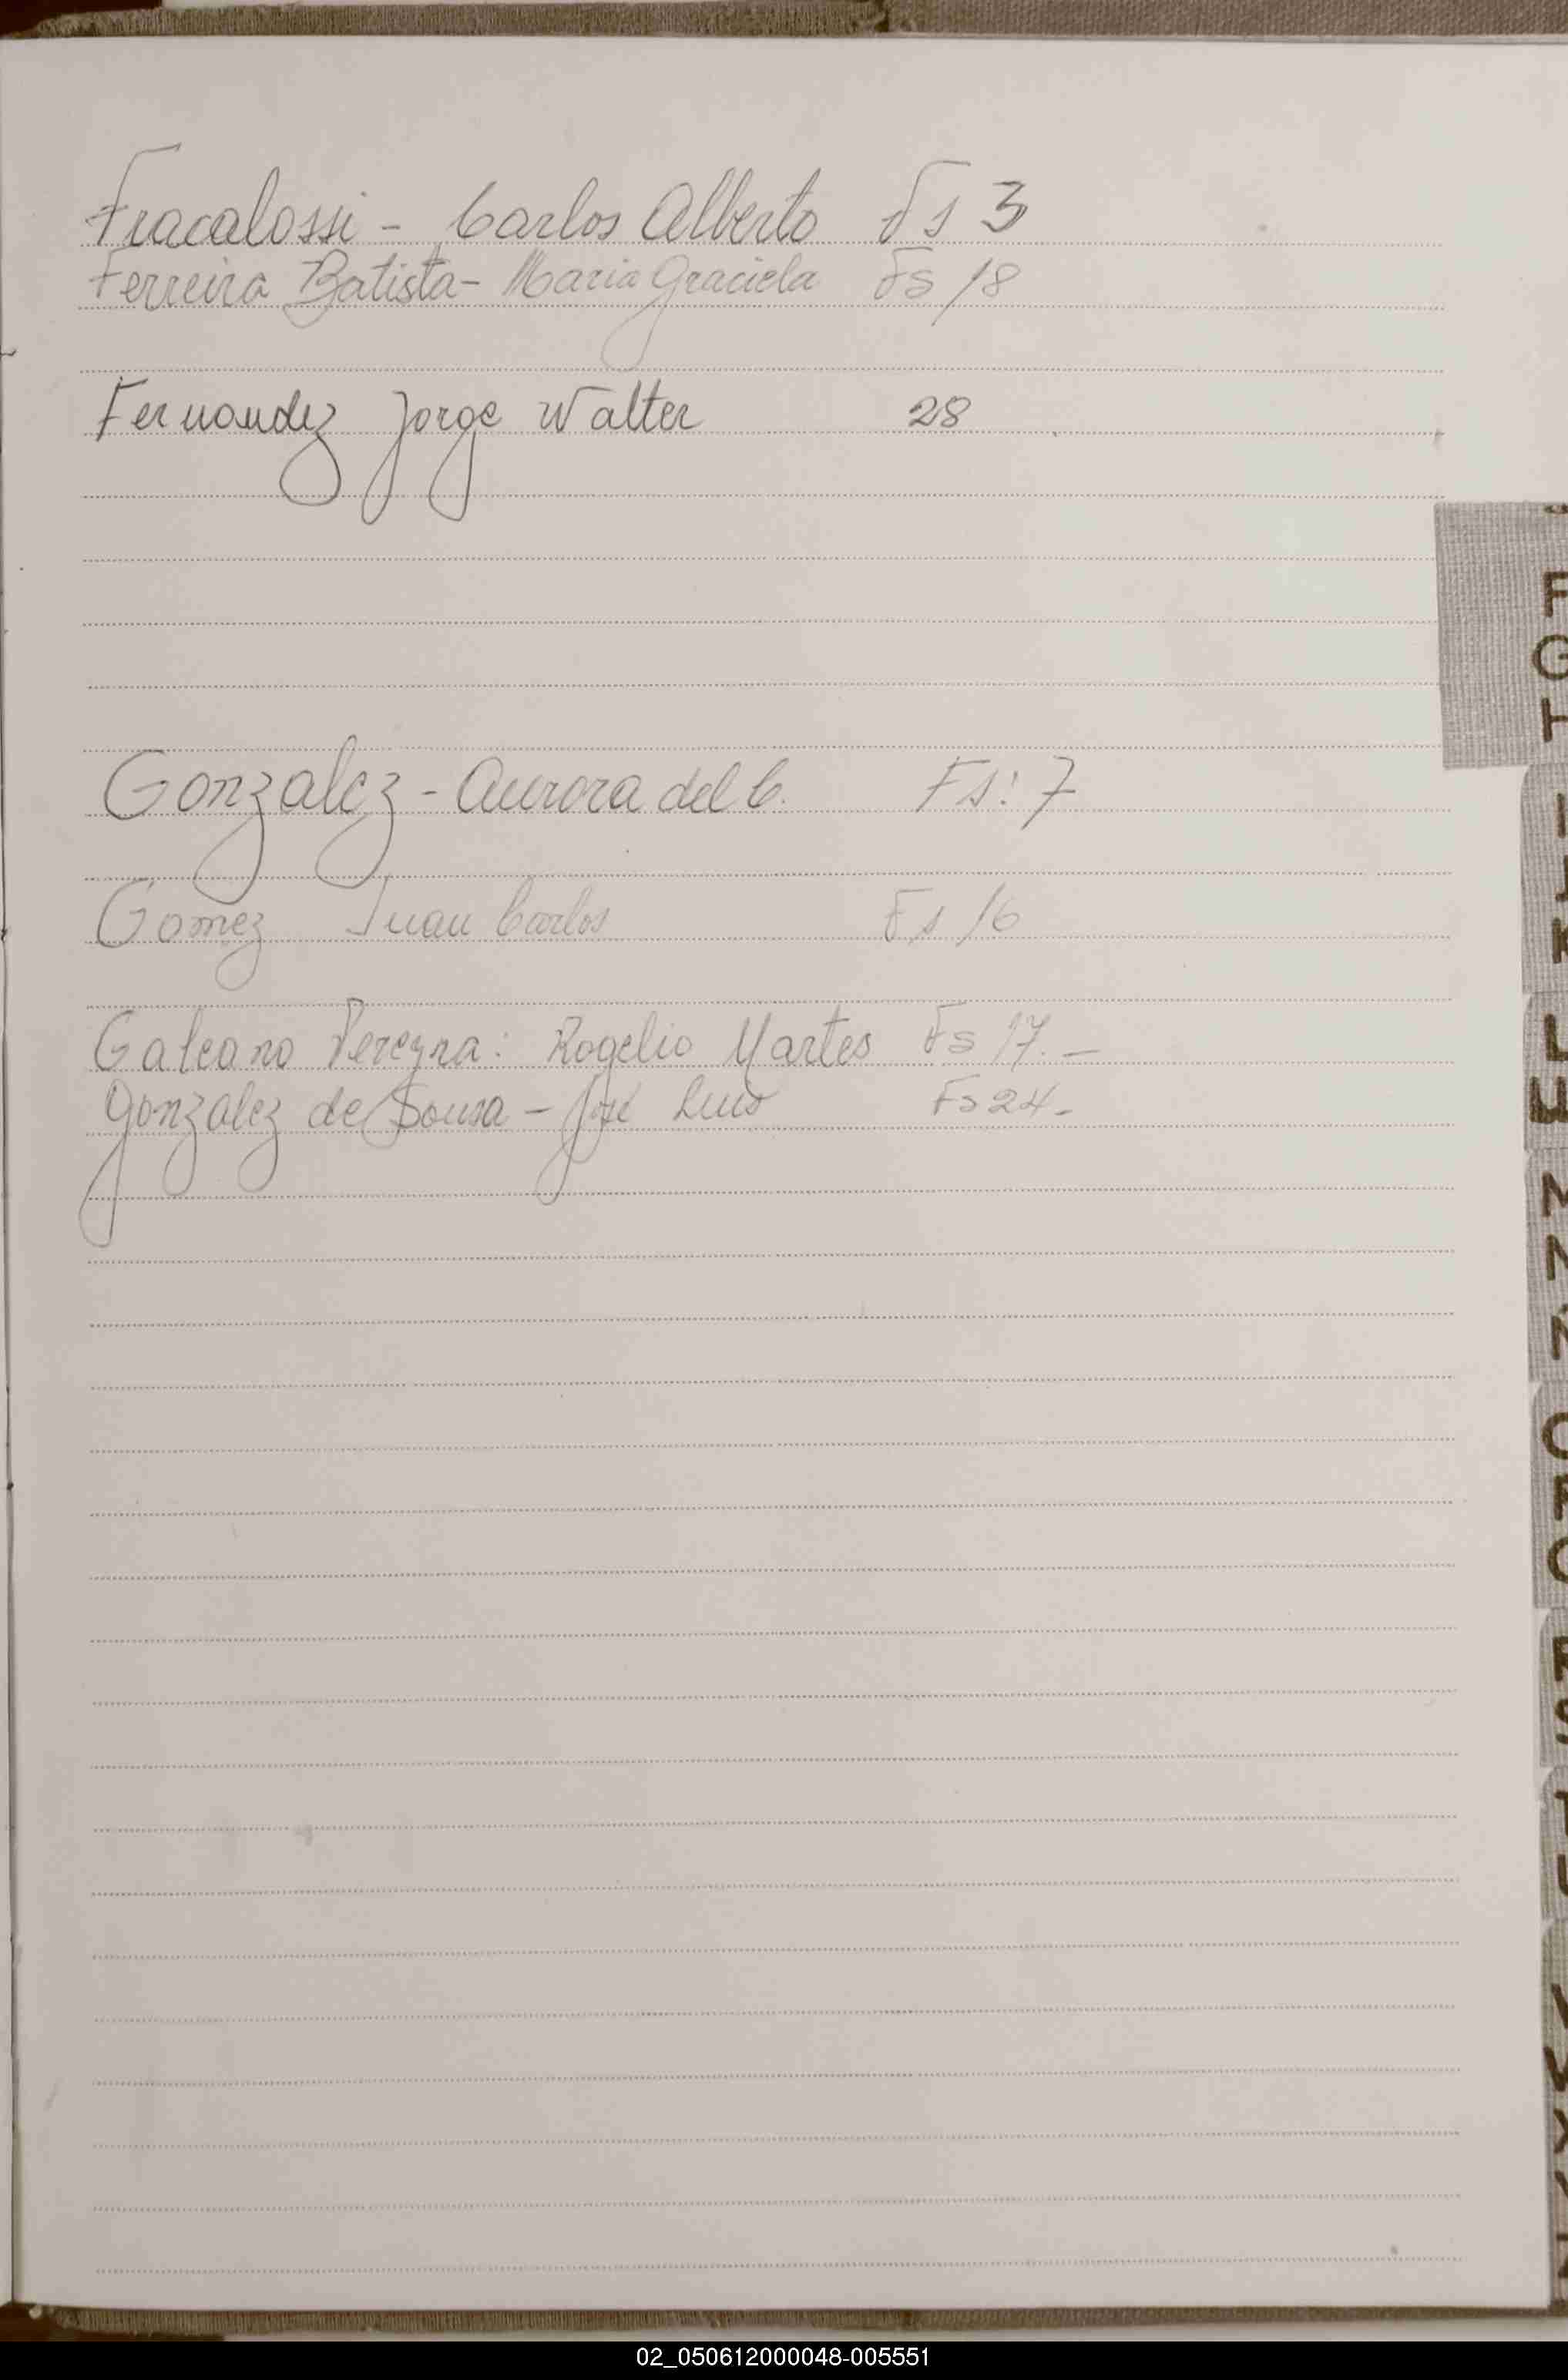 Fracalossi - Carlos Alberto Fs 3
Ferreira Batista - Maria Graciela Fs 18
Fernandez Jorge Walter 28
Gonzalez - Aurora del C. Fs: 7
Gomez Juan Carlos Fs 16
Galeano Pereyra: Rogelio Martes Fs 17.-
Gonzalez de Sousa - José Luis Fs 24-
F
G
I
J
K
L
LL
M
N
Ñ
O
P
Q
R
S
T
U
V
W
X
Y
Z
02_050612000048-005551